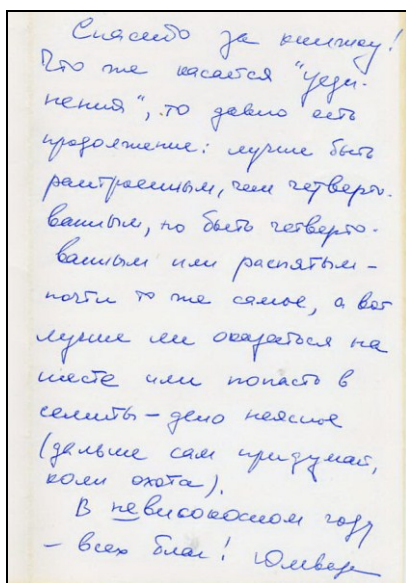 Спасибо за книжку!
Что же касается "уеди-
нения", то давно есть
продолжение: лучше быть
расстроенным, чем четверто-
ванным, но быть четверто-
ванным или распятым –
почти то же самое, а вот
лучше ли оказаться на
шесте или попасть в
семиты – дело неясное
(дальше сам придумай,
коли охота).
В невисокосном году
– всех благ!